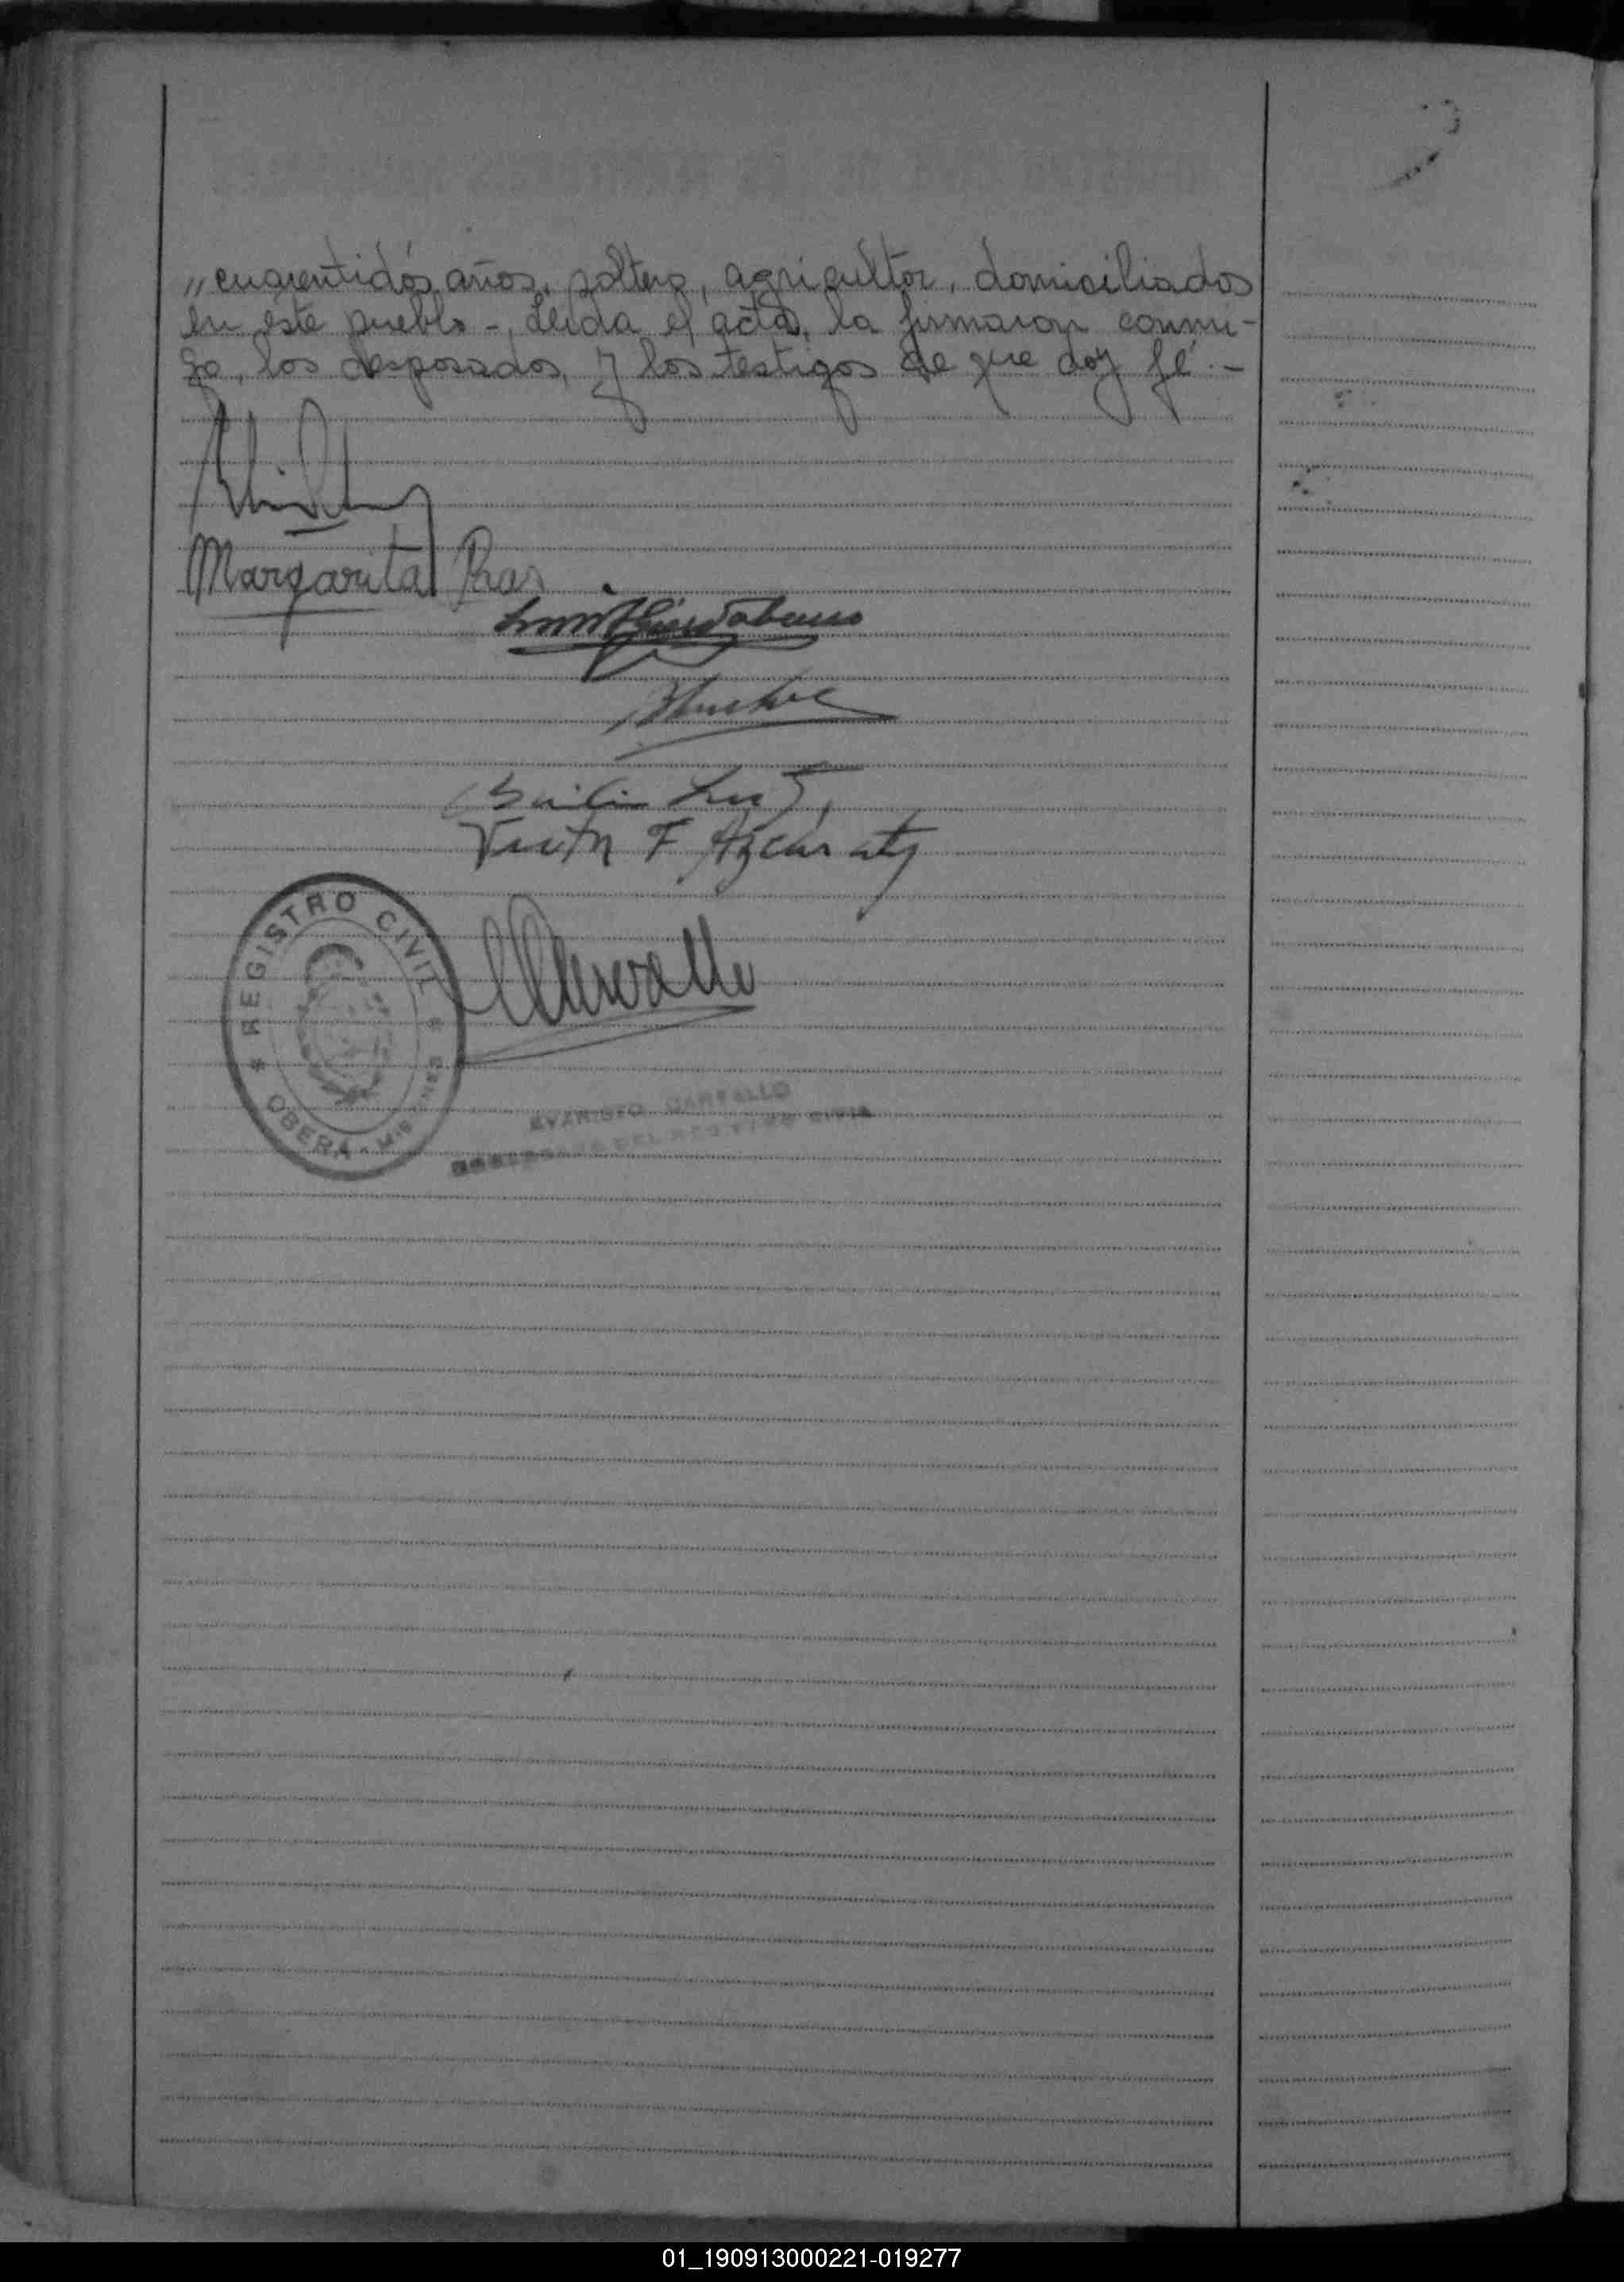 „cuarentidós años, soltero, agricultor, domiciliados
en éste pueblo -, Leida el acta, la firmaron conmi-
go, los desposados, y los testigos de que doy fé.-
Margarita
Victor F Azcárate
REGISTRO CIVIL
OBERÁ - MISIONES
EVARISTO CARVALLO
DEL REGISTRO CIVIL
01_190913000221-019277